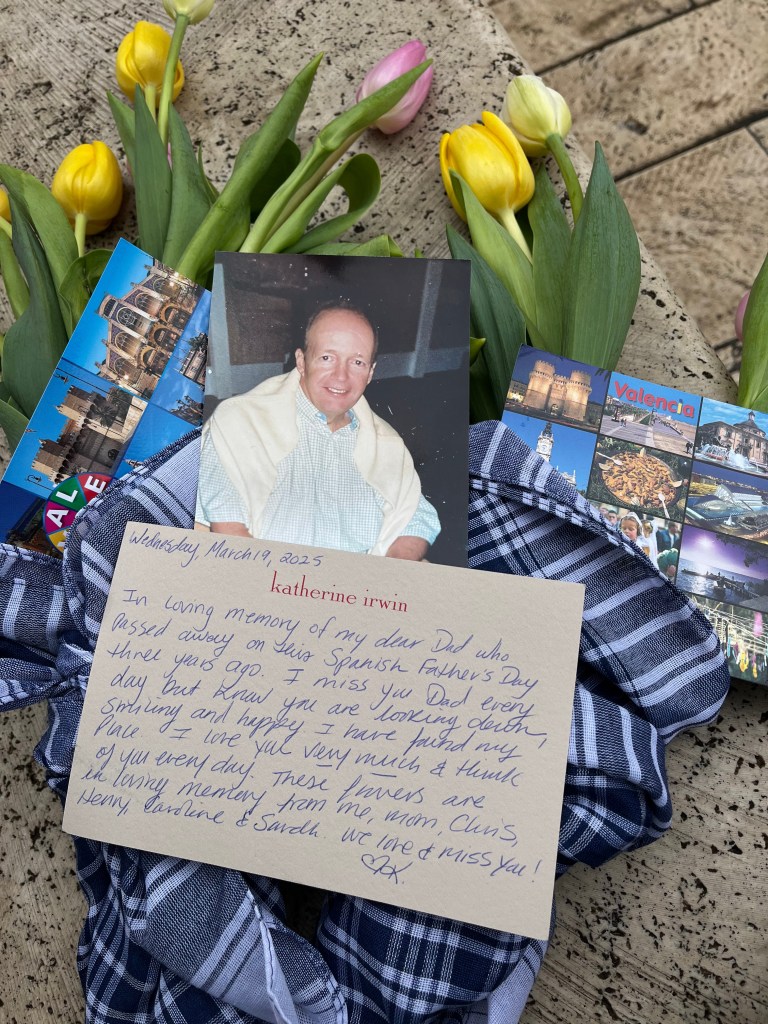 Valencia
VALE
Wednesday, March 19, 2025
katherine irwin
In loving memory of my dear Dad who
passed away on this Spanish Father's Day
three years ago. I miss you Dad every
day but know you are looking down,
smiling and happy I have found my
place. I love you very much & think
of you every day. These flowers are
in loving memory from me, mom, Chris,
Henny, Caroline & Sarah. We love & miss you!
♡K.